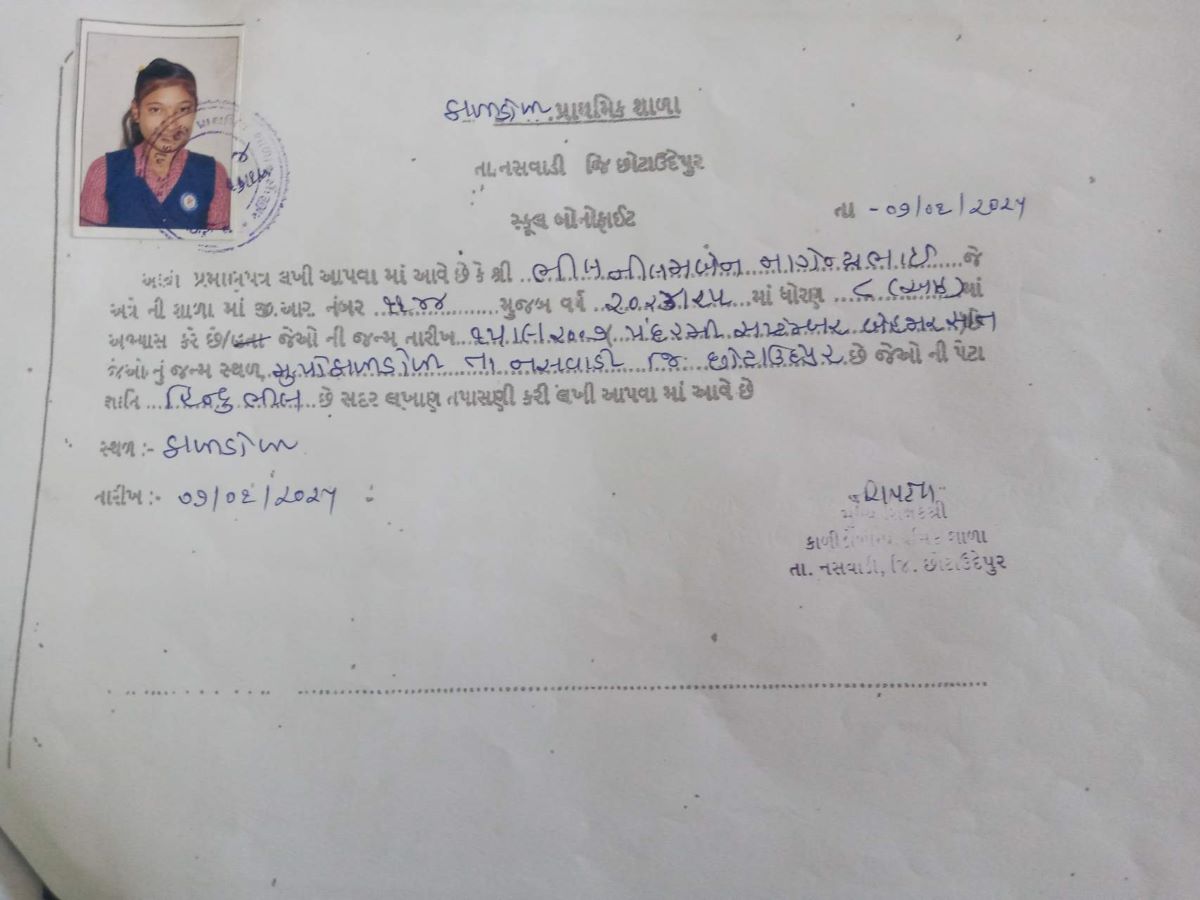 કાળીડોળ પ્રાથમિક શાળા
તા.નસવાડી જિ છોટાઉદેપુર
તા -૦૧/૦૬/૨૦૨૫
સ્કૂલ બોનોફાઈટ
આથી પ્રમાણપત્ર લખી આપવા માં આવે છે કે શ્રી ભીલ નીલમબેન નાગેન્દ્રભાઈ જે
અત્રે ની શાળા માં જી.આર. નંબર ૧૧૪૪ મુજબ વર્ષ ૨૦૨૪/૨૫ માં ધોરણ ૮ (આઠ) માં
અભ્યાસ કરે છે/ હતા જેઓ ની જન્મ તારીખ પંદરમી સપ્ટેમ્બર બેહજાર
જેઓનું જન્મ સ્થળ મુ.પો કાળીડોળી તા નસવાડી જિ છોટાઉદેપુર છે જેઓ ની પેટા
જ્ઞાતિ હિન્દુ ભીલ છે સદર લખાણ તપાસણી કરી લખી આપવા માં આવે છે
સ્થળ :- કાળીડોળ
તારીખ :- ૦૧/૦૬/૨૦૨૫
કાળીડોળી પ્રાથમિક શાળા
તા. નસવાડી, જિ. છોટાઉદેપુર